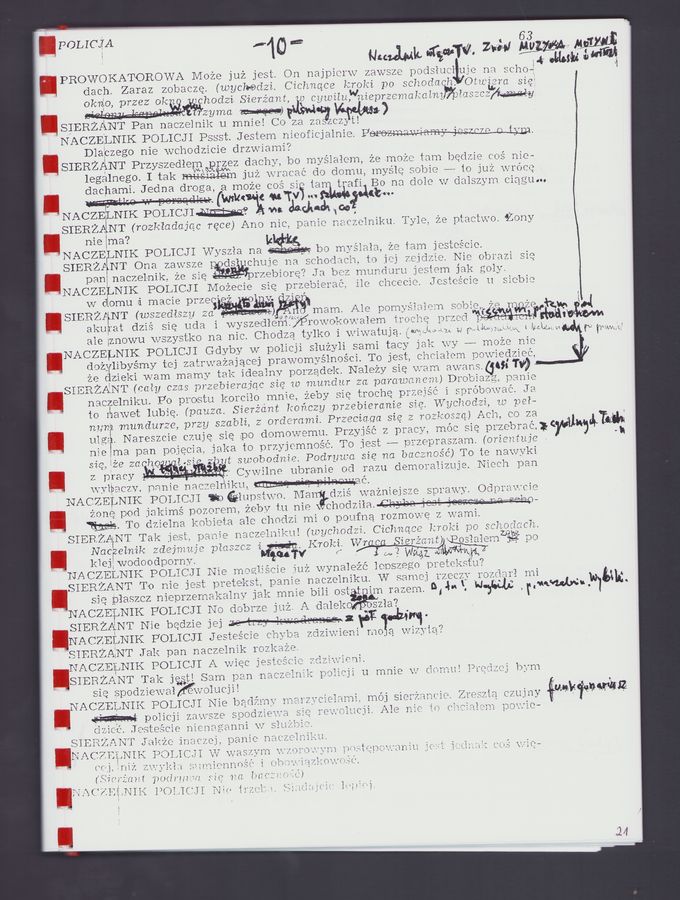 POLICJA
-10-
63
Naczelnik włącza TV. Znów MUZYKA
PROWOKATOROWA Może już jest. On najpierw zawsze podsłuchuje na scho-
dach. Zaraz zobaczę. (wychodzi. Cichnące kroki po schodach. Otwiera się
okno, przez okno wchodzi Sierżant, w cywilu, w nieprzemakalnym płaszczu,
trzyma pilśniowy kapelusz)
SIERŻANT Pan naczelnik u mnie! Co za zaszczyt!
NACZELNIK POLICJI Pssst. Jestem nieoficjalnie. Porozmawiamy jeszcze o tym.
Dlaczego nie wchodzicie drzwiami?
SIERŻANT Przyszedłem przez dachy, bo myślałem, że może tam będzie coś nie-
legalnego. I tak musiałem już wracać do domu, myślę sobie — to już wrócę
dachami. Jedna droga, a może coś się tam trafi. Bo na dole w dalszym ciągu...
wszystko w porządku. (wskazuje na TV)... szkoda gadać...
NACZELNIK POLICJI A na dachach, co?
SIERŻANT (rozkładając ręce) Ano nic, panie naczelniku. Tyle, że ptactwo. Żony
nie ma?
NACZELNIK POLICJI Wyszła na schody, klatkę bo myślała, że tam jesteście.
SIERŻANT Ona zawsze podsłuchuje na schodach, to jej zejdzie. Nie obrazi się
pan naczelnik, że się troszkę przebiorę? Ja bez munduru jestem jak goły.
NACZELNIK POLICJI Możecie się przebierać, ile chcecie. Jesteście u siebie
w domu i macie przecież wolny dzień.
SIERŻANT (wszedłszy za Ano mam. Ale pomyślałem sobie, że może
akurat dziś się uda i wyszedłem. Prowokowałem trochę przed
ale znowu wszystko na nic. Chodzą tylko i wiwatują.
NACZELNIK POLICJI Gdyby w policji służyli sami tacy jak wy — może nie
dożylibyśmy tej zatrważającej prawomyślności. To jest, chciałem powiedzieć,
że dzięki wam mamy tak idealny porządek. Należy się wam awans. (gasi TV)
SIERŻANT (cały czas przebierając się w mundur za parawanem) Drobiazg, panie
naczelniku. Po prostu korciło mnie, żeby się trochę przejść i spróbować. Ja
to nawet lubię. (pauza. Sierżant kończy przebieranie się. Wychodzi, w peł-
nym mundurze, przy szabli, z orderami. Przeciąga się z rozkoszą) Ach, co za
ulga. Nareszcie czuję się po domowemu. Przyjść z pracy, móc się przebrać.
nie ma pan pojęcia, jaka to przyjemność. To jest — przepraszam. (orientuje
się, że zachował się zbyt swobodnie. Podrywa się na baczność) To te nawyki
z pracy w tajnej służbie. Cywilne ubranie od razu demoralizuje. Niech pan
wybaczy, panie naczelniku,
NACZELNIK POLICJI Głupstwo. Mamy dziś ważniejsze sprawy. Odprawcie
żonę pod jakimś pozorem, żeby tu nie wchodziła. Chyba jest jeszcze na scho-
dach. To dzielna kobieta ale chodzi mi o poufną rozmowę z wami.
SIERŻANT Tak jest, panie naczelniku! (wychodzi. Cichnące kroki po schodach.
Naczelnik zdejmuje płaszcz i włącza TV. Kroki. Wraca Sierżant) Posłałem żonę po
klej wodoodporny.
NACZELNIK POLICJI Nie mogliście już wynaleźć lepszego pretekstu?
SIERŻANT To nie jest pretekst, panie naczelniku. W samej rzeczy rozdarł mi
się płaszcz nieprzemakalny jak mnie bili ostatnim razem. O, tu! Wybili. p. naczelniku. Wybili.
NACZELNIK POLICJI No dobrze już. A daleko żona poszła?
SIERŻANT Nie będzie jej ze trzy kwadranse. z pół godziny.
NACZELNIK POLICJI Jesteście chyba zdziwieni moją wizytą?
SIERŻANT Jak pan naczelnik rozkaże.
NACZELNIK POLICJI A więc jesteście zdziwieni.
SIERŻANT Tak jest! Sam pan naczelnik policji u mnie w domu! Prędzej bym
się spodziewał rewolucji!
NACZELNIK POLICJI Nie bądźmy marzycielami, mój sierżancie. Zresztą czujny funkcjonariusz
policji zawsze spodziewa się rewolucji. Ale nie to chciałem powie-
dzieć. Jesteście nienaganni w służbie.
SIERŻANT Jakże inaczej, panie naczelniku.
NACZELNIK POLICJI W waszym wzorowym postępowaniu jest jednak coś wię-
cej, niż zwykła sumienność i obowiązkowość.
(Sierżant podrywa się na baczność)
NACZELNIK POLICJI Nie trzeba. Siadajcie lepiej.
21